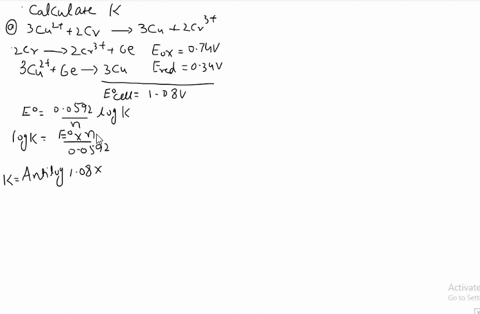 Calculate K
(a) 3Cu²⁺ + 2Cr → 3Cu + 2Cr³⁺
2Cr → 2Cr³⁺ + 6e Eox = 0.74V
3Cu²⁺ + 6e → 3Cu Ered = 0.34V
E°cell = 1.08V
E° = 0.0592/n log K
log K = E° x n/0.0592
K = Antilog 1.08 x
Activate
Go to Sett